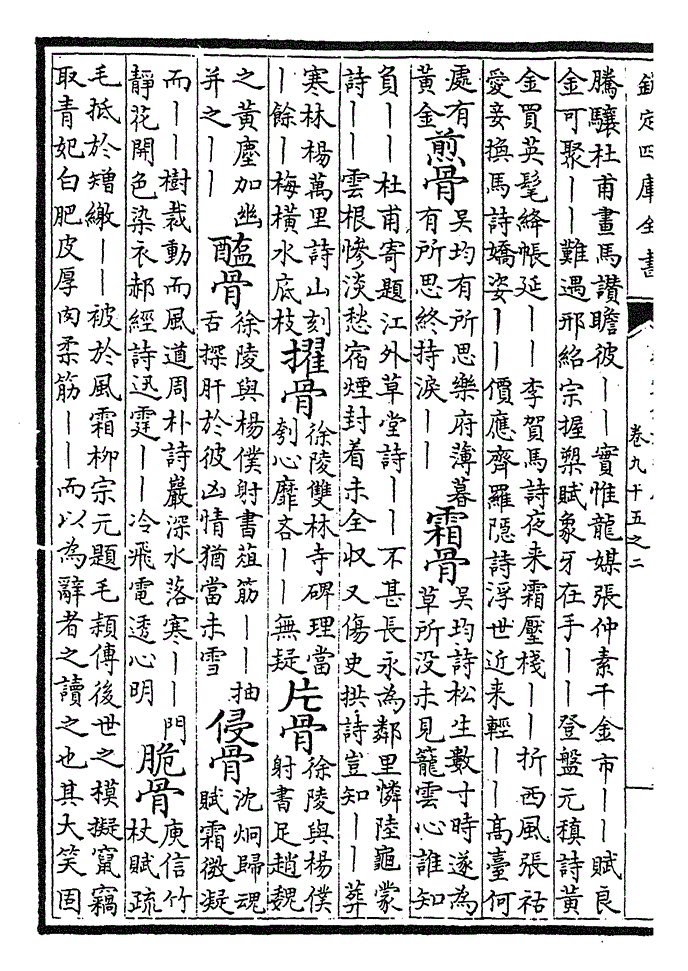 欽定四庫全書
卷九十五之二
騰驤杜甫畫馬讚瞻彼｜｜實惟龍媒張仲素千金市｜｜賦良
金可聚｜｜難遇邢紹宗握槊賦象牙在手｜｜登盤元稹詩黃
金買英髦絳帳延｜｜李賀馬詩夜来霜壓棧｜｜折西風張祜
愛妾換馬詩嬌姿｜｜價應齊羅隱詩浮世近来輕｜｜高臺何
處有黃金
煎骨
吳均有所思樂府薄暮
有所思終持淚｜｜
霜骨
吳均詩松生數寸時遂為
草所没未見籠雲心誰知
負｜｜杜甫寄題江外草堂詩｜｜不甚長永為鄰里憐陸龜蒙
詩｜｜雲根慘淡愁宿煙封着未全収又傷史拱詩豈知｜｜葬
寒林楊萬里詩山刻
｜餘｜梅橫水底枝
擢骨
徐陵雙林寺碑理當
刳心靡吝｜｜無疑
片骨
徐陵與楊僕
射書足趙魏
之黃塵加幽
并之｜｜
醢骨
徐陵與楊僕射書葅筋｜｜抽
舌探肝於彼凶情猶當未雪
侵骨
沈炯歸魂
賦霜微凝
而｜｜樹裁動而風道周朴詩巖深水落寒｜｜門
靜花開色染衣郝經詩迅霆｜｜冷飛電透心明
脆骨
庾信竹
杖賦疏
毛抵於矰繳｜｜被於風霜柳宗元題毛頴傳後世之模擬竄竊
取青妃白肥皮厚肉柔筋｜｜而以為辭者之讀之也其大笑固